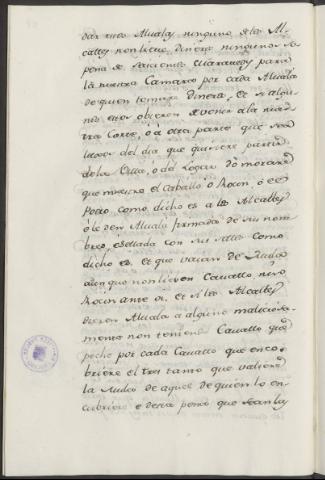 dar estas Alvalas ninguno de los Al-
caldes non lieve dineros ningunos so
pena de seiscientos Maravedis para
la nuestra Camara por cada Alvala
de quien tomare dineros, et si algu-
nos otros obieren de venir a la nues-
tra Corte, o a otra parte que sea
del dia que quisiere partir
de la Villa, o del Logar do morare
que muestre el Caballo o Rocin, o el
Potro como dicho es a los Alcalles
o le den Alvala firmada de sus nom-
bres, e sellada con sus sellos como
dicho es. et que vaian de
aunque non lieven Cavallo nin
Rocin ante si. et si los Alcalles
dieren Alvala a alguno maliciosa-
mente non teniendo Cavallo que
peche por cada Cavallo que enco-
briere el tres tanto que valiere
la de aquel de quien lo en-
cubriere e desta pena que sean las